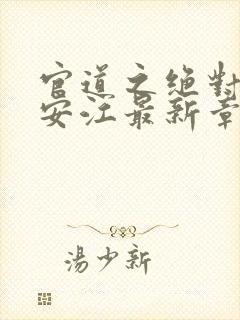 官道之绝对
安江最新章
湯少新